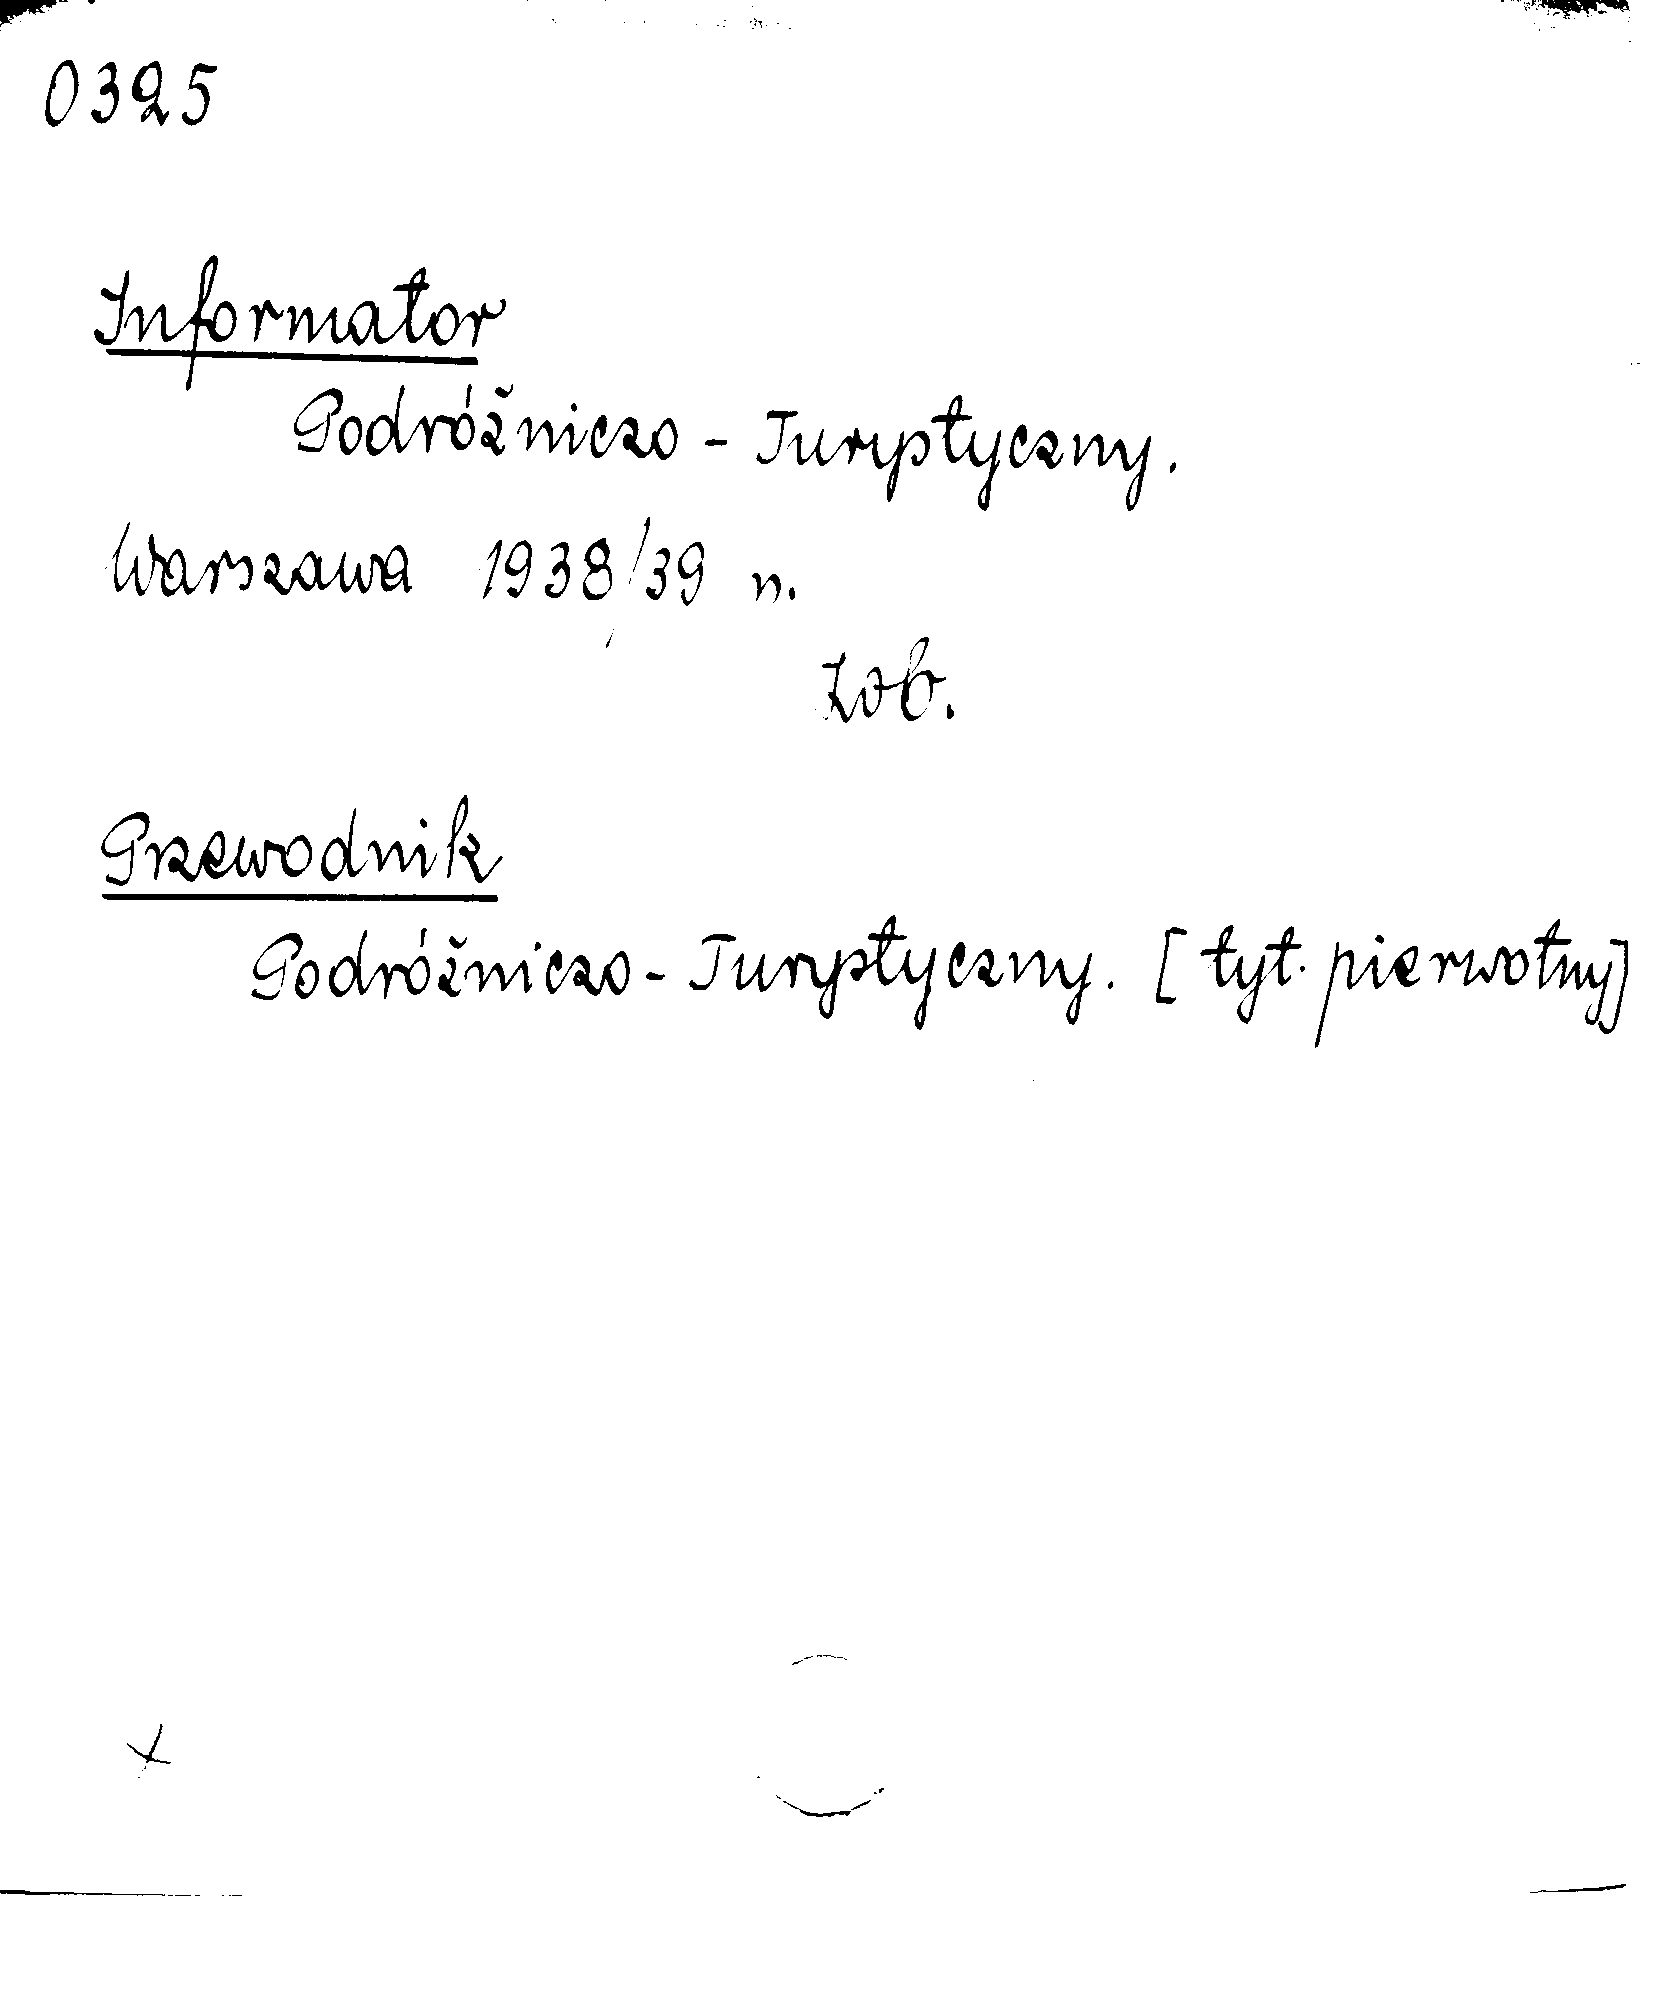 0325
Informator
Podróżniczo - Turystyczny.
Warszawa 1938/39 n.
Zob.
Przewodnik
Podróżniczo - Turystyczny. [tyt. pierwotny]